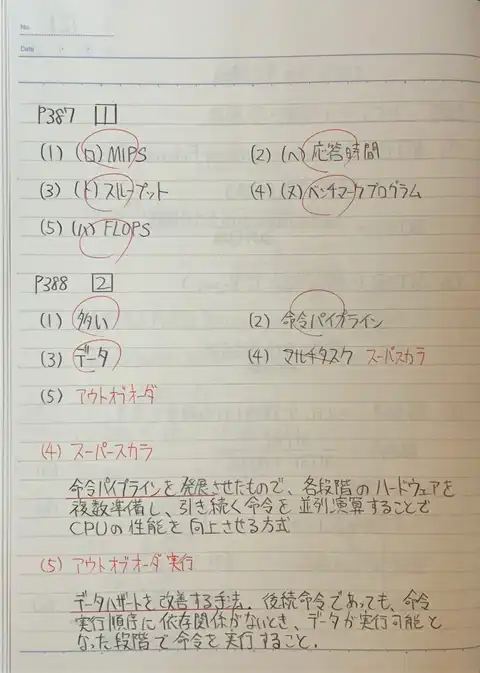 No.
Date
P387 1
(1) (ロ) MIPS (2) (ハ) 応答時間
(3) (ト) スループット (4) (ヌ) ベンチマークプログラム
(5) FLOPS
P388 2
(1) 多い (2) 命令パイプライン
(3) データ (4) マルチタスク スーパスカラ
(5) アウトオブオーダ
(4) スーパースカラ
命令パイプラインを発展させたもので、各段階のハードウェアを
複数準備し、引き続く命令を並列演算することで
CPUの性能を向上させる方式
(5) アウトオブオーダ実行
データハザードを改善する手法。後続命令であっても、命令
実行順序に依存関係がないとき、データが実行可能と
なった段階で命令を実行すること.